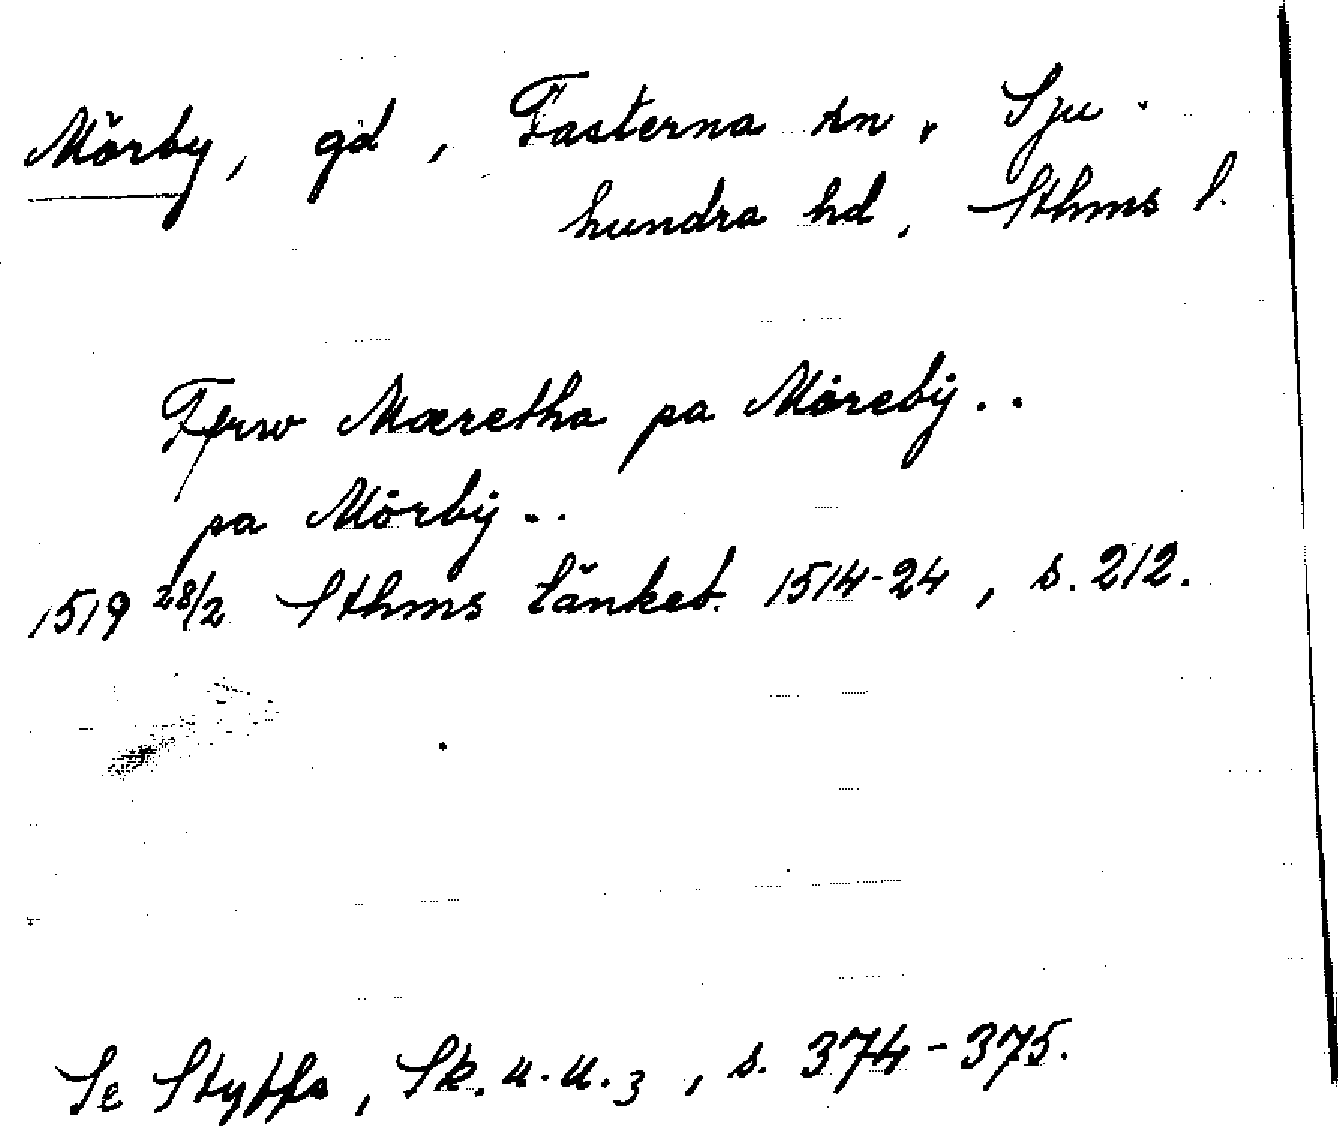 Mörby, gd, Fasterna sn, Sju-
hundra hd, Sthms l.
Ffrw Mæretha pa Möreby..
pa Mörby..
1519 28/2 Sthms tänkeb. 1514-24, s. 212.
Se Styffe, Sk. u. u. 3, s. 374-375.